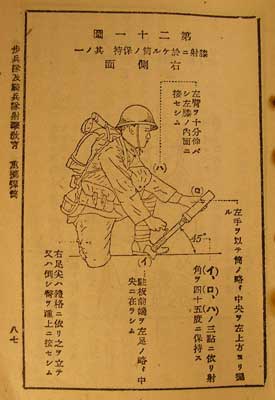 第二十一圖
膝射ニ於ケル筒ノ保持 其ノ一
右側面
左臂ヲ十分伸バ
シ左膝ノ内面ニ
接セシム
(ハ)
(ロ)
左手ヲ以テ筒ノ略〻中央ヲ左上方ヨリ握
ル
45°
イ、ロ、ハノ三點ニ依リ射
角ヲ四十五度ニ保持ス
(イ)
駐板前端ヲ左足ノ略〻中
央ニ在ラシム
右足尖ハ體格ニ依リ之ヲ立テ
又ハ倒シ臀ヲ踵上ニ接セシム
步兵隊及騎兵隊射擊敎育 重擲彈筒
八七